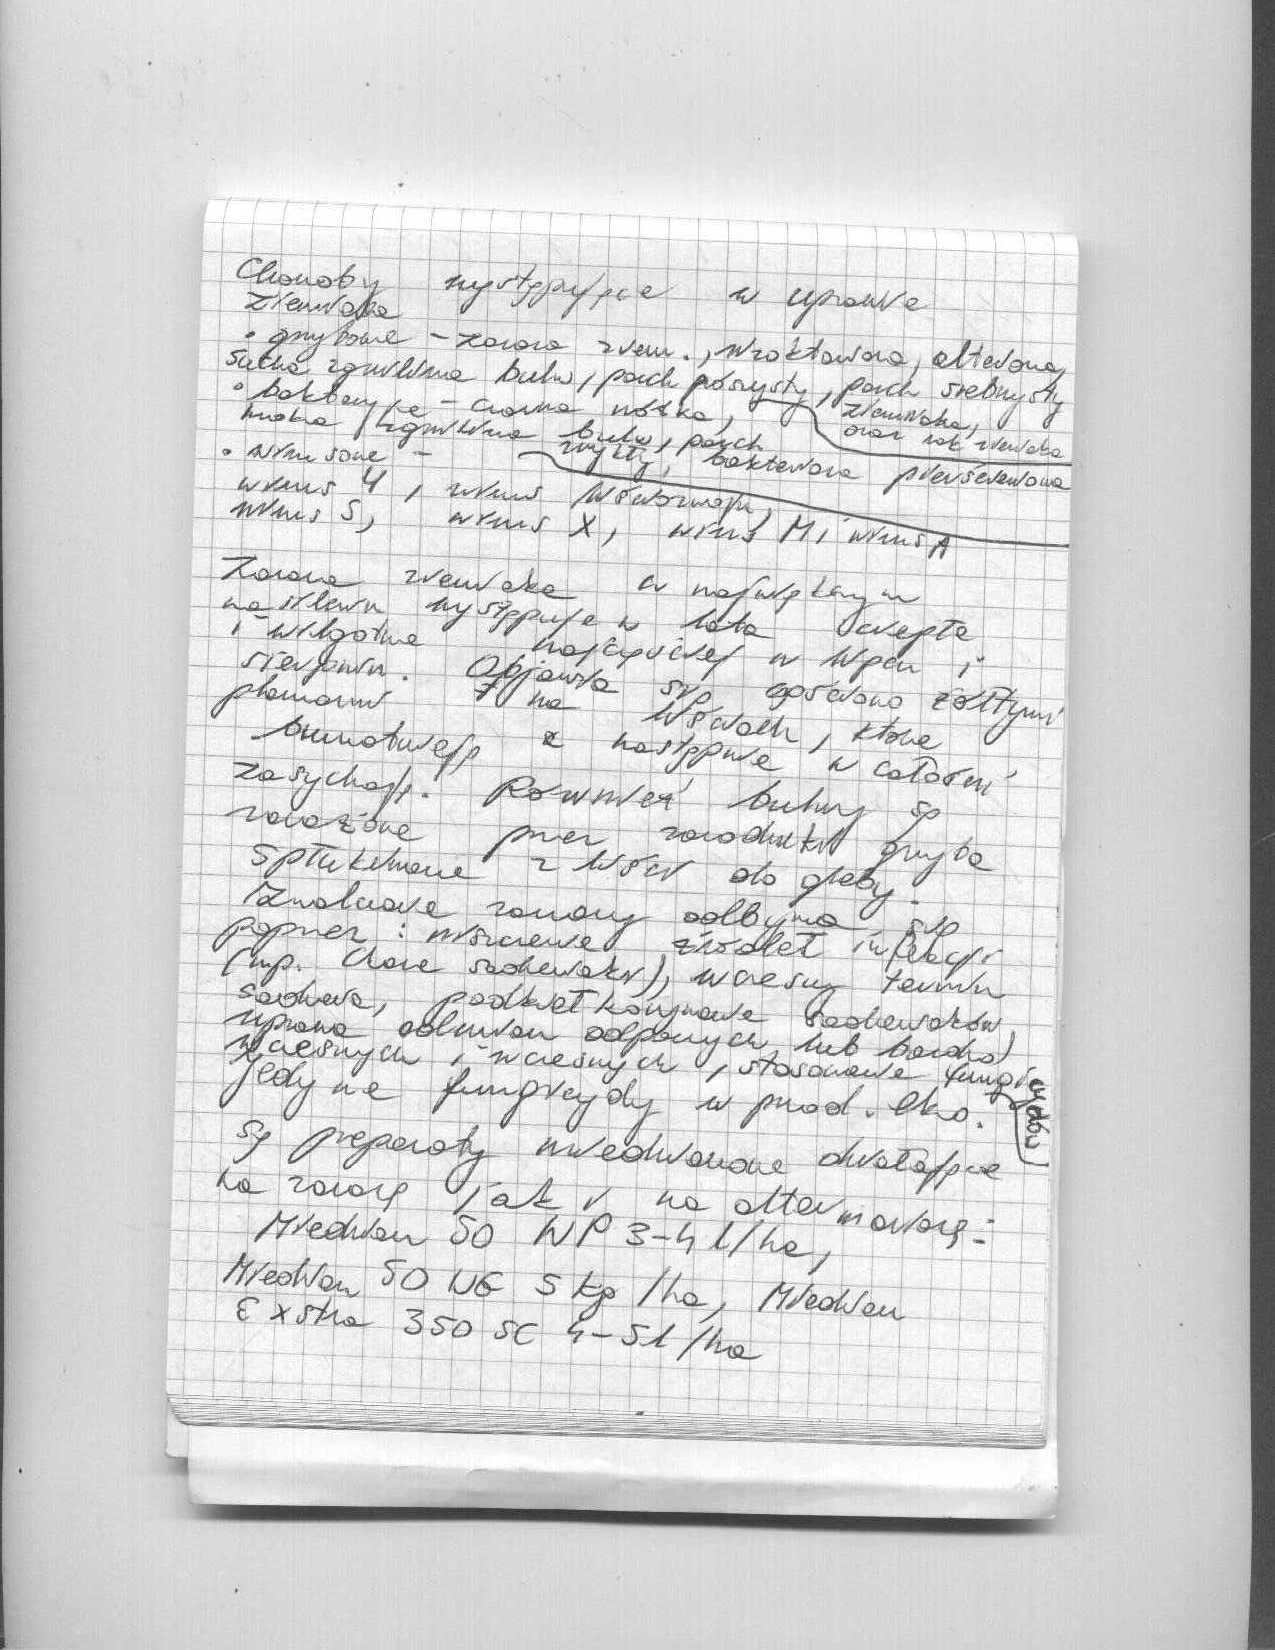 Choroby występujące w uprawie
ziemniaka
• grzybowe - zaraza ziem., rizoktonioza, alternarioza,
sucha zgnilizna bulw, parch prószysty, parch srebrzysty
ziemniaka,
oraz rak ziemniaka
• bakteryjne - czarna nóżka,
mokra zgnilizna bulw, parch
zwykły, bakterioza pierścieniowa
• wirusowe -
wirus Y, wirus liściozwoju,
wirus S, wirus X, wirus M i wirus A
Zaraza ziemniaka w największym
nasileniu występuje w lata ciepłe
i wilgotne najczęściej w lipcu i
sierpniu. Objawia się żółtymi
plamami na liściach, które
brunatnieją a następnie w całości
zasychają. Również bulwy są
zarażone przez zarodniki grzyba
spłukiwane z liści do gleby.
Zwalczanie zarazy odbywa się
poprzez: niszczenie źródeł infekcji
(np. chore sadzeniaki), wczesny termin
sadzenia, podkiełkowywanie sadzeniaków,
uprawa odmian odpornych lub bardzo
wczesnych i wczesnych, stosowanie fungicydów
Jedyne fungicydy w prod. eko.
są preparaty miedziowane działające
na zarazę jak i na alternariozę:
Miedzian 50 WP 3-4 l/ha,
Miedzian 50 WG 5 kg/ha, Miedzian
Exstra 350 SC 4-5 l/ha